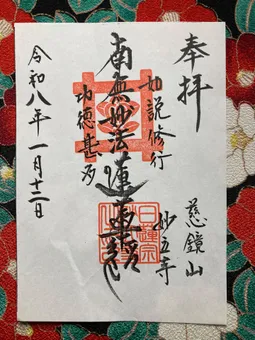 奉拝
慈鏡山
妙立寺
如説修行
南無妙法蓮華経
功徳甚多
令和八年一月十二日
日蓮宗